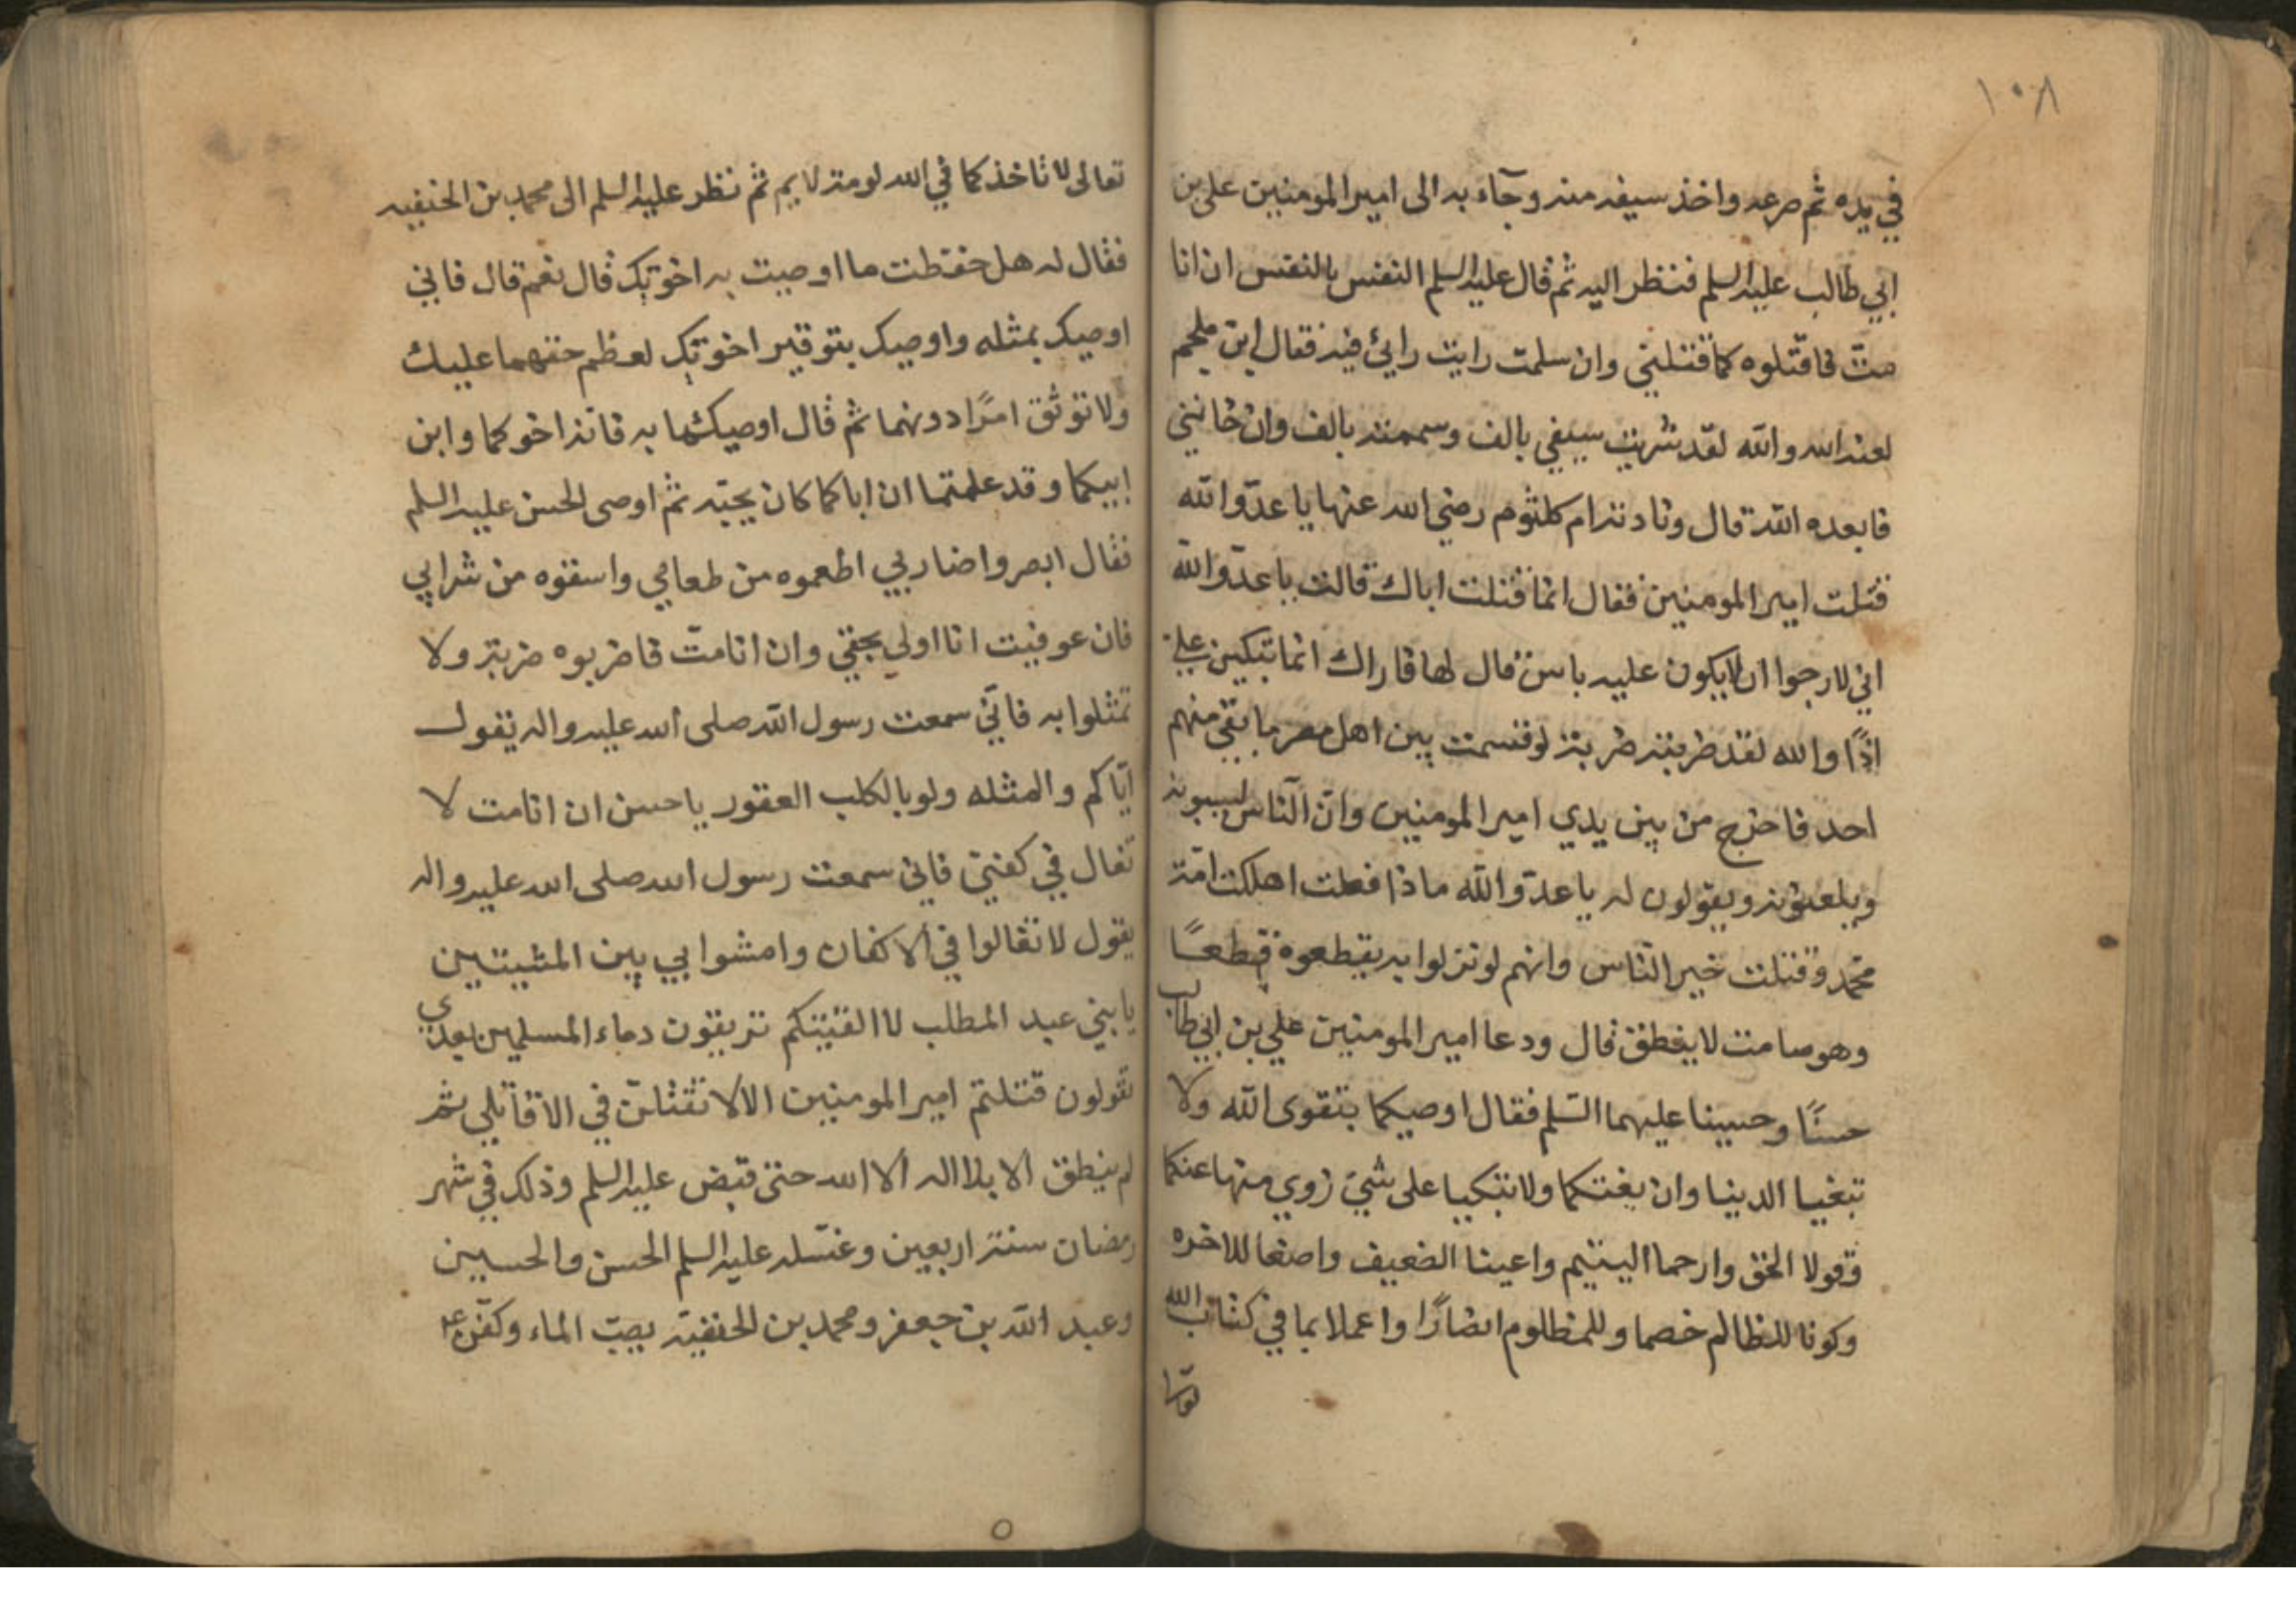 ١٠٨
في يده ثم صرعه واخذ سيفه منه وجآء به الى امير المومنين علي بن
ابي طالب عليه السلم فنظر اليه ثم قال عليه السلم النفس بالنفس ان انا
متّ فاقتلوه كما قتلني وان سلمت رايت رايئ فيه فقال ابن ملجم
لعنه الله والله لقد شريت سيفي بالف وسممته بالف وان خانني
فابعده الله قال ونادته ام كلثوم رضي الله عنها يا عدّو الله
قتلت امير المومنين فقال انما قتلت اباك قالت يا عدّو الله
اني لارجوا ان لا يكون عليه باس قال لها فاراك انما تبكين عليّ
اذًا والله لقد ضربته ضربة لو قسمت بين اهل مصر ما بقي منهم
احد فاخرج من بين يدي امير المومنين وانّ الناس ليسبونه
ويلعنونه ويقولون له يا عدّو الله ماذا فعلت اهلكت امّة
محمد وقتلت خير الناس وانهم لو تركوا به يقطعوه قطعًا
وهو صامت لا ينطق قال ودعا امير المومنين علي بن ابي طالب
حسنًا وحسينا عليهما السّلم فقال اوصيكما بتقوى الله ولا
تبغيا الدنيا وان بغتكما ولا تبكيا على شيئ زوي منها عنكما
وقولا الحق وارحما اليتيم واعينا الضعيف واصنعا للاخره
وكونا للظالم خصما وللمظلوم انصارًا واعملا بما في كتاب الله
تعالى
تعالى لا تاخذكما في الله لومة لايم ثم نظر عليه السلم الى محمد بن الحنفيه
فقال له هل حفظت ما اوصيت به اخوتك قال نعم قال فاني
اوصيك بمثله واوصيك بتوقير اخوتك لعظم حقهما عليك
ولا توثق امرًا دونهما ثم قال اوصيكما به فانه اخوكما وابن
ابيكما وقد علمتما ان اباكما كان يحبّه ثم اوصى الحسن عليه السلم
فقال ابصروا ضاربي اطعموه من طعامي واسقوه من شرابي
فان عوفيت انا اولى بحقي وان انا متّ فاضربوه ضربة ولا
تمثلوا به فانّي سمعت رسول الله صلى الله عليه واله يقول
ايّاكم والمثله ولو بالكلب العقور يا حسن ان انا مت لا
تغال في كفني فاني سمعت رسول الله صلى الله عليه واله
يقول لا تغالوا في الاكفان وامشوا بي بين المشيتين
يا بني عبد المطلب لا الفيتكم تريقون دماء المسلمين بعدي
تقولون قتلتم امير المومنين الا لا تقتلن في الا قاتلي ثم
لم ينطق الا بلا اله الا الله حتى قبض عليه السلم وذلك في شهر
رمضان سنة اربعين وغسّله عليه السلم الحسن والحسين
وعبد الله بن جعفر ومحمد بن الحنفية يصبّ الماء وكفّن